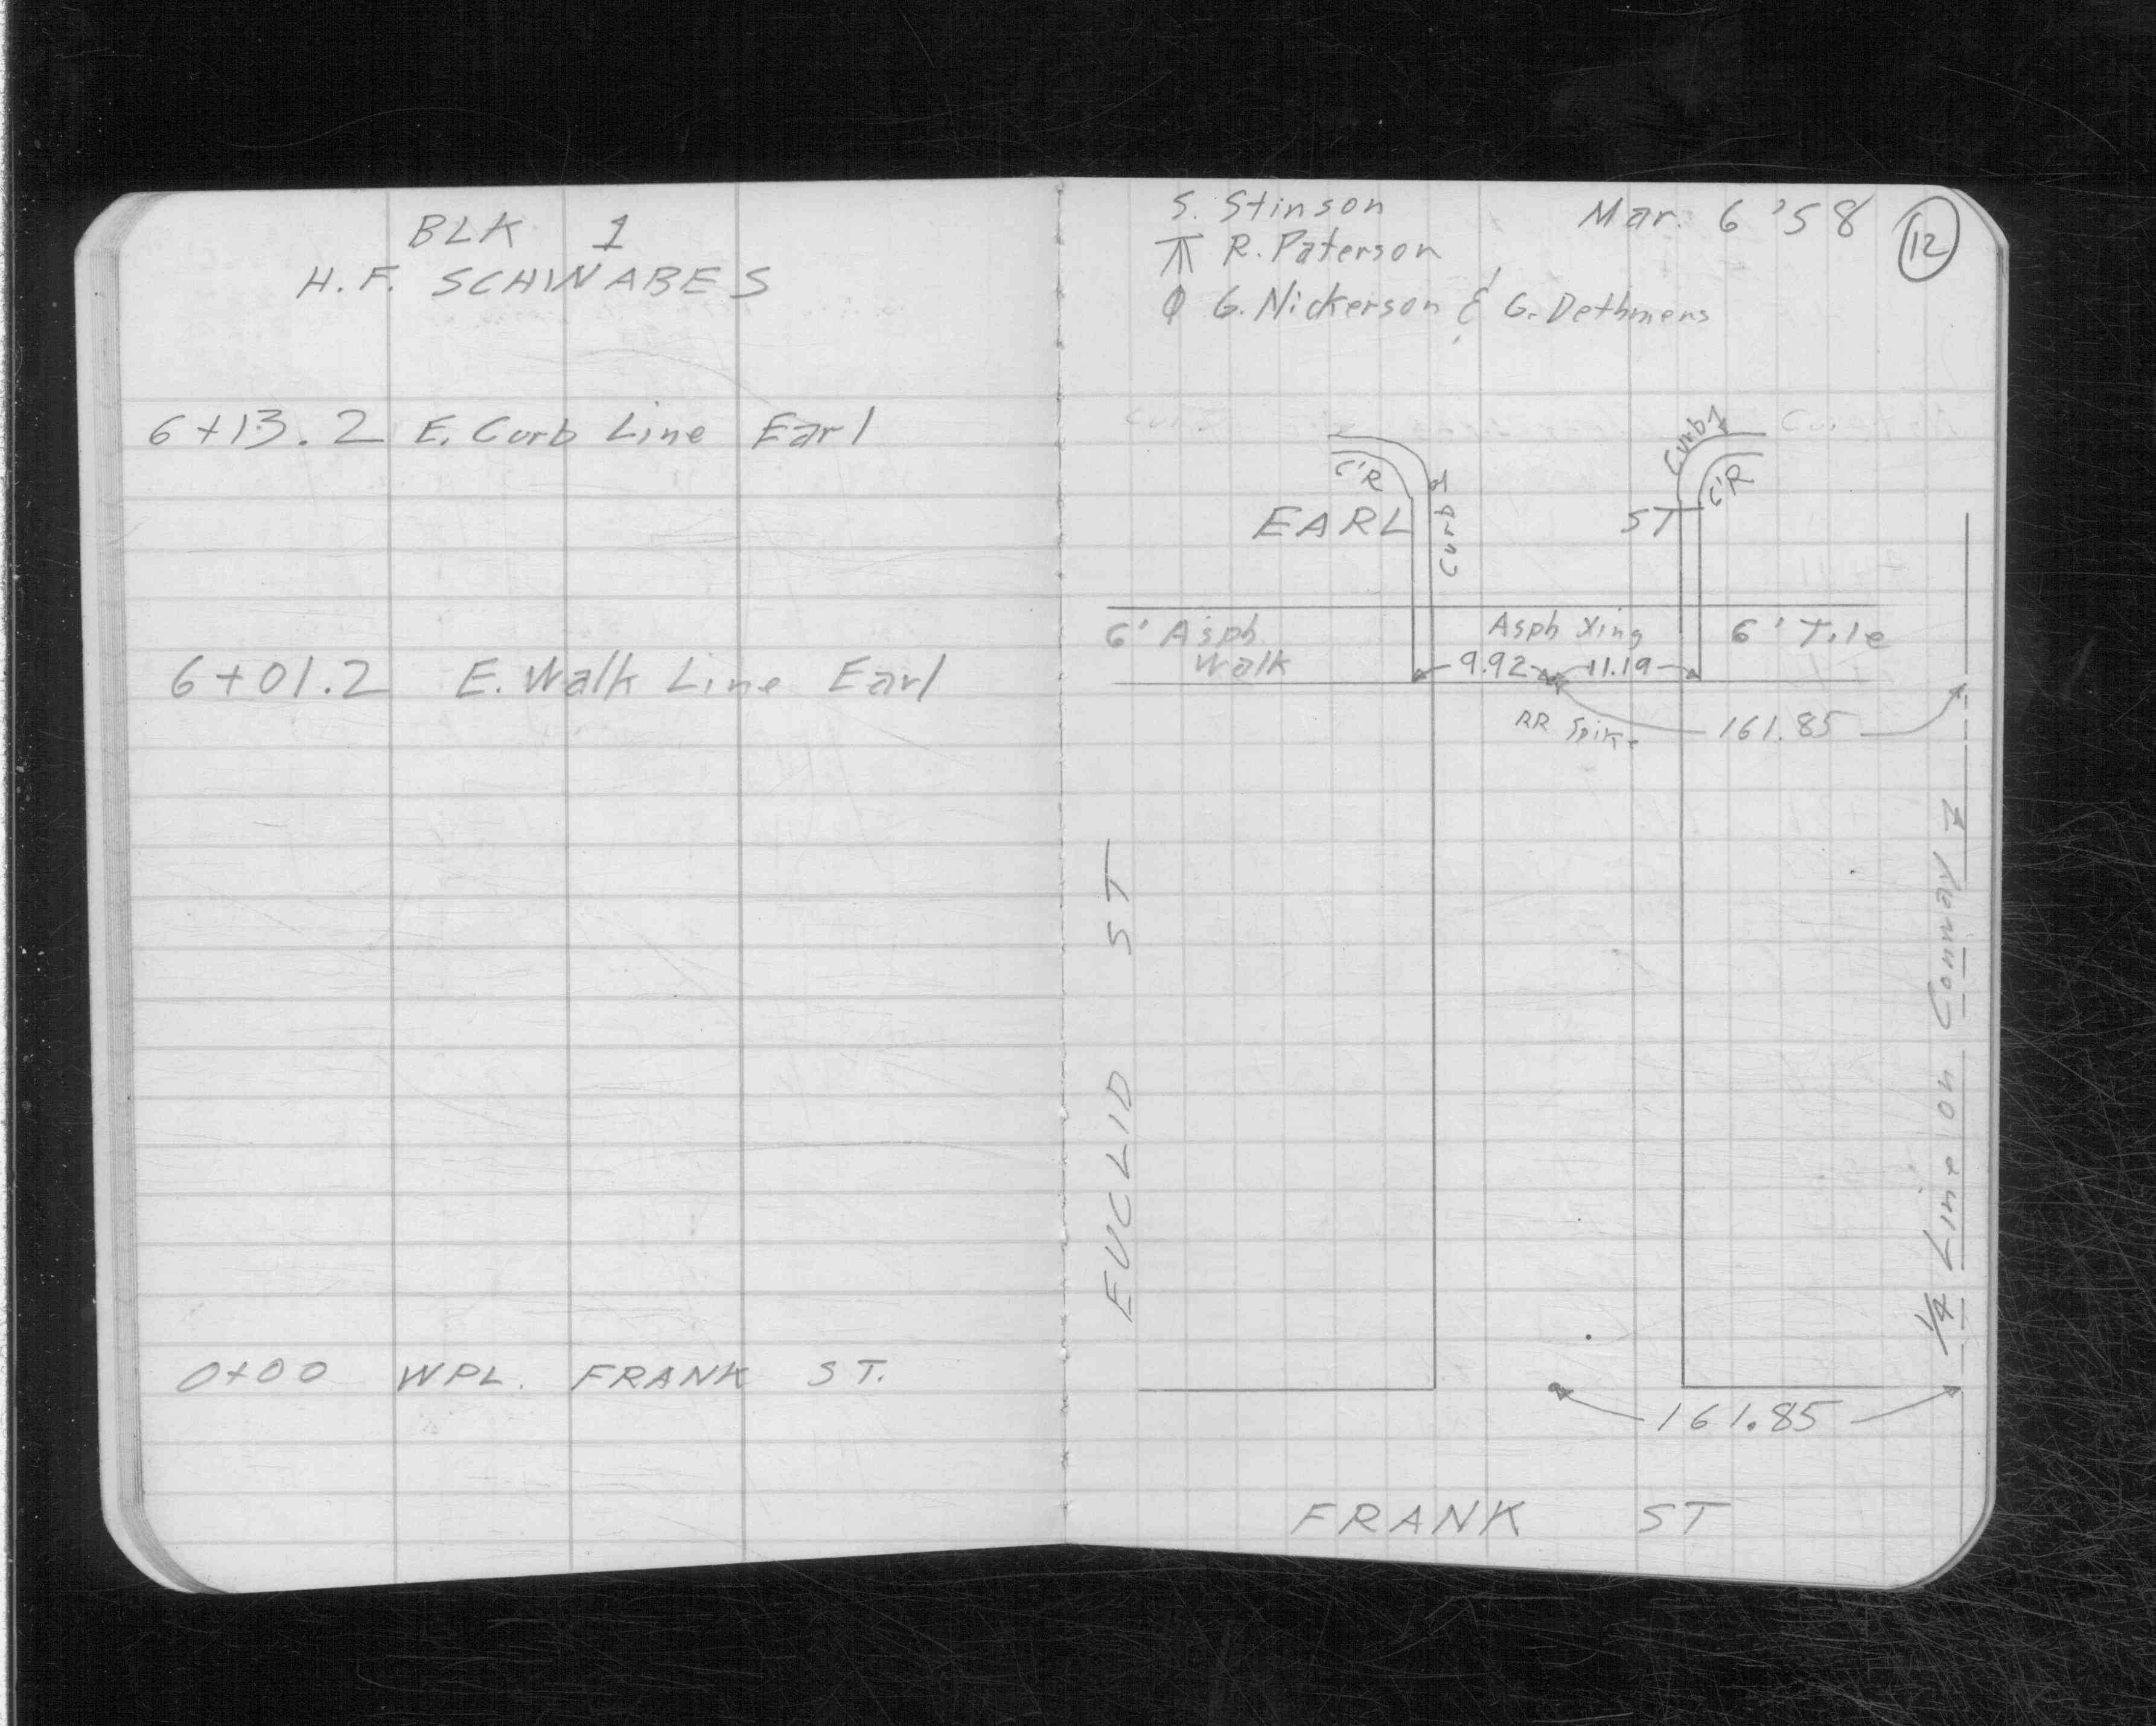 BLK 1
H.F. SCHWABES
6+13.2 E. Curb Line Earl
6+01.2 E. Walk Line Earl
0+00 WPL. FRANK ST.
S. Stinson
R. Paterson
G. Nickerson & G. Dethmers
Mar. 6 '58
12
Curb
C'R
Curb
C'R
EARL ST
6' Asph Walk
Asph Xing
6' Tile
9.92
11.19
RR Spike
161.85
EUCLID ST
1/4 Line on Conway
161.85
FRANK ST